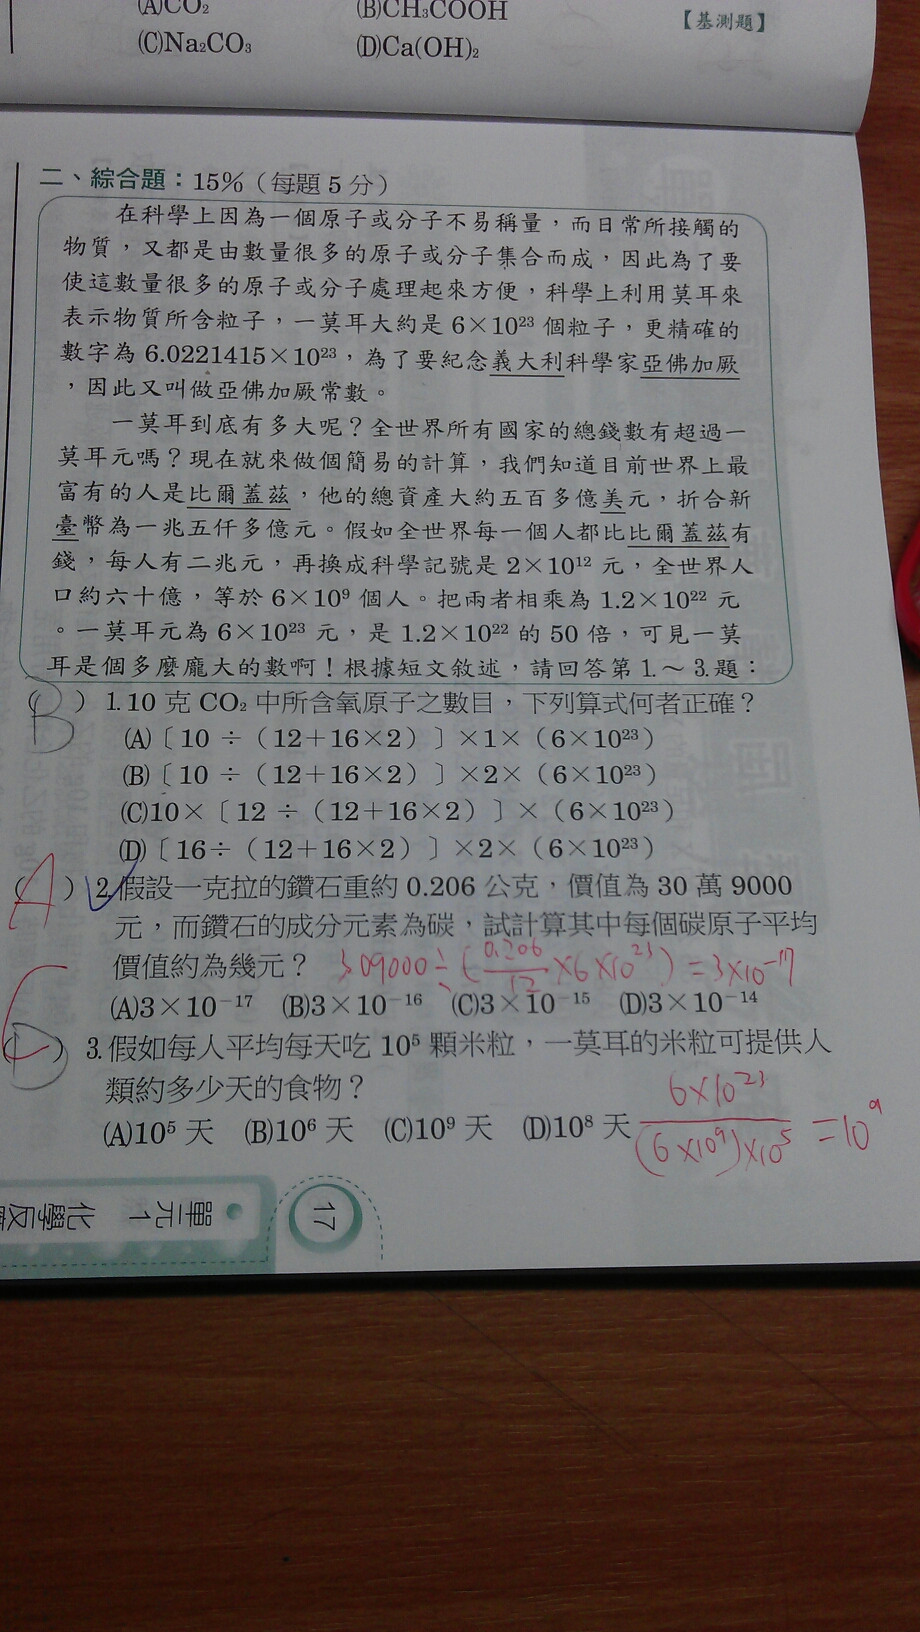 (A)CO₂ (B)CH₃COOH
(C)Na₂CO₃ (D)Ca(OH)₂ 【基測題】
二、綜合題：15%（每題 5 分）
在科學上因為一個原子或分子不易稱量，而日常所接觸的
物質，又都是由數量很多的原子或分子集合而成，因此為了要
使這數量很多的原子或分子處理起來方便，科學上利用莫耳來
表示物質所含粒子，一莫耳大約是 6×10²³ 個粒子，更精確的
數字為 6.0221415×10²³，為了要紀念義大利科學家亞佛加厥
，因此又叫做亞佛加厥常數。
一莫耳到底有多大呢？全世界所有國家的總錢數有超過一
莫耳元嗎？現在就來做個簡易的計算，我們知道目前世界上最
富有的人是比爾蓋茲，他的總資產大約五百多億美元，折合新
臺幣為一兆五仟多億元。假如全世界每一個人都比比爾蓋茲有
錢，每人有二兆元，再換成科學記號是 2×10¹² 元，全世界人
口約六十億，等於 6×10⁹ 個人。把兩者相乘為 1.2×10²² 元
。一莫耳元為 6×10²³ 元，是 1.2×10²² 的 50 倍，可見一莫
耳是個多麼龐大的數啊！根據短文敘述，請回答第 1.～ 3.題：
(B) 1.10 克 CO₂ 中所含氧原子之數目，下列算式何者正確？
(A)〔10 ÷（12＋16×2）〕×1×（6×10²³）
(B)〔10 ÷（12＋16×2）〕×2×（6×10²³）
(C)10×〔12 ÷（12＋16×2）〕×（6×10²³）
(D)〔16÷（12＋16×2）〕×2×（6×10²³）
(A) 2.假設一克拉的鑽石重約 0.206 公克，價值為 30 萬 9000
元，而鑽石的成分元素為碳，試計算其中每個碳原子平均
價值約為幾元？ 309000÷(0.206/12×6×10²³)=3×10⁻¹⁷
(A)3×10⁻¹⁷ (B)3×10⁻¹⁶ (C)3×10⁻¹⁵ (D)3×10⁻¹⁴
(D) C 3.假如每人平均每天吃 10⁵ 顆米粒，一莫耳的米粒可提供人
類約多少天的食物？
(A)10⁵ 天 (B)10⁶ 天 (C)10⁹ 天 (D)10⁸ 天 6×10²³/(6×10⁹)×10⁵=10⁹
17 單元1 化學反